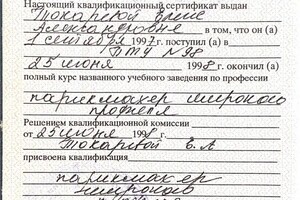 Настоящий квалификационный сертификат выдан
Токаревой Елене
Александровне в том, что он (а)
1 сентября 1997 г. поступил (а) в
ПТУ №98
25 июня 1998 г. окончил (а)
полный курс названного учебного заведения по профессии
парикмахер широкого
профиля
Решением квалификационной комиссии
от 25 июня 1998 г.
Токаревой Е.А
присвоена квалификация
парикмахер
широкого